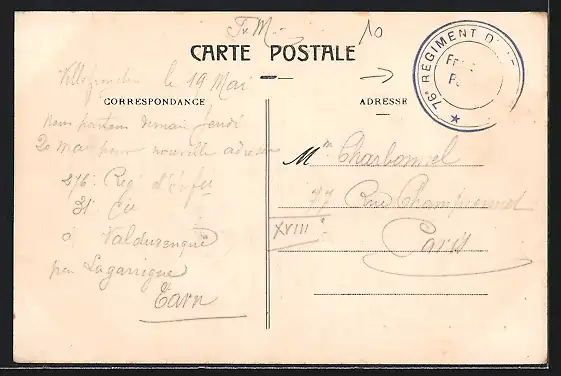 F. M. 10
CARTE POSTALE
Villefranche le 19 Mai
CORRESPONDANCE
ADRESSE
Nous partons demain Jeudi
20 Mai pour nouvelle adresse
276e Regt d'Infie
31e Cie
à Valdurenque
par Lagarrigue
Tarn
Mme Charbonnel
77 Rue Championnet
XVIII e
Paris
76e RÉGIMENT D'